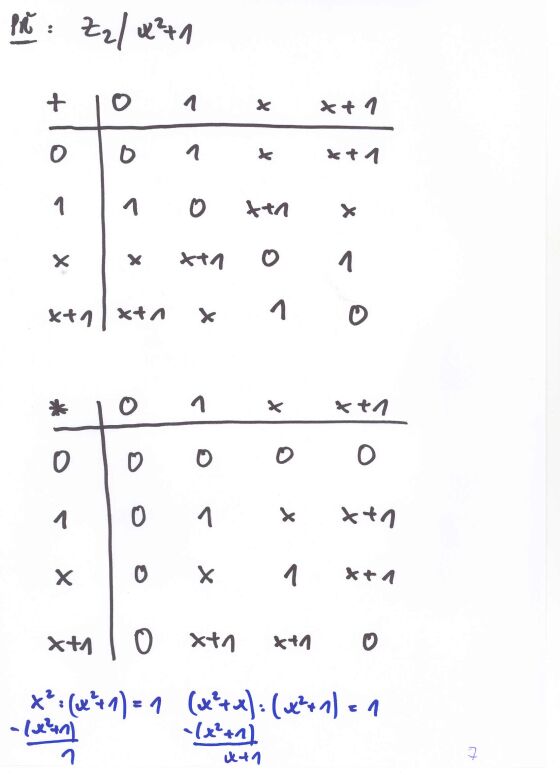 Př: Z₂/x²+1
+ | 0 1 x x+1
0 | 0 1 x x+1
1 | 1 0 x+1 x
x | x x+1 0 1
x+1 | x+1 x 1 0
* | 0 1 x x+1
0 | 0 0 0 0
1 | 0 1 x x+1
x | 0 x 1 x+1
x+1 | 0 x+1 x+1 0
x² : (x²+1) = 1 (x²+x) : (x²+1) = 1
-(x²+1) -(x²+1)
1 x+1
7